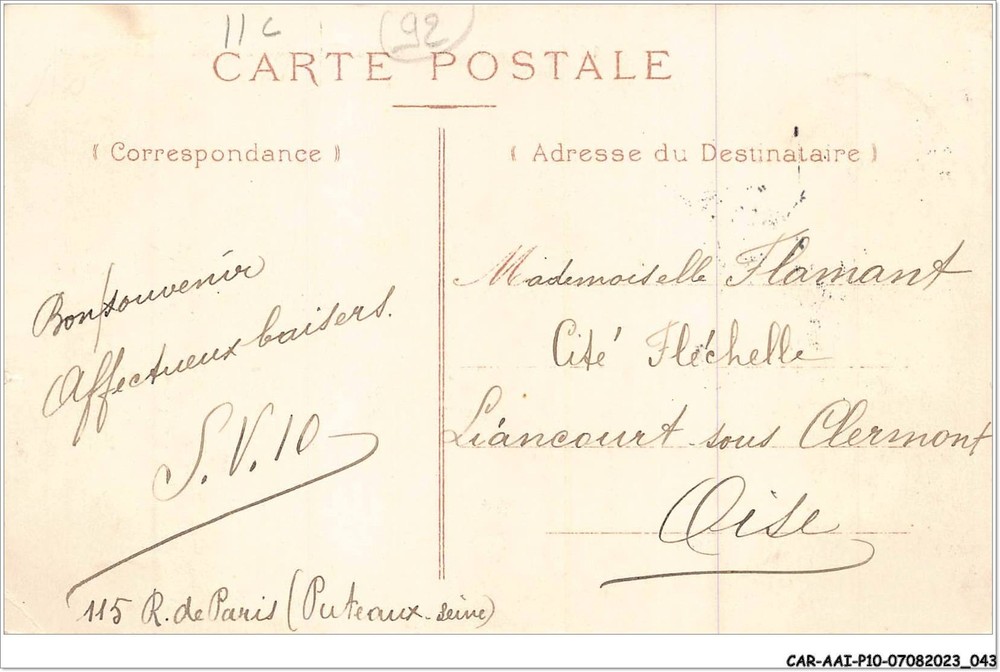 11 c (92)
CARTE POSTALE
Correspondance
Adresse du Destinataire
Bon souvenir
Affectueux baisers.
S.V.10
115 R. de Paris (Puteaux-Seine)
Mademoiselle Flamant
Cité Fléchelle
Liancourt sous Clermont
Oise
CAR-AAI-P10-07082023_043